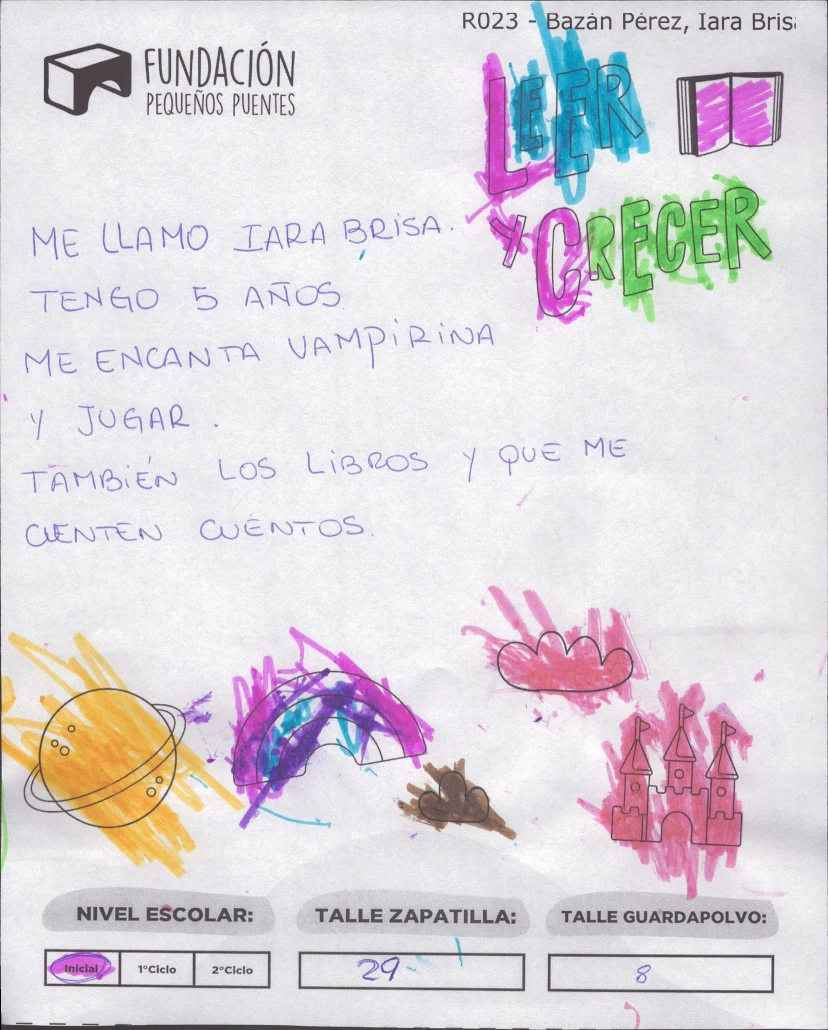 R023 - Bazán Pérez, Iara Brisa
FUNDACIÓN
PEQUEÑOS PUENTES
LEER
Y CRECER
ME LLAMO IARA BRISA.
TENGO 5 AÑOS
ME ENCANTA VAMPIRINA
Y JUGAR.
TAMBIÉN LOS LIBROS Y QUE ME
CUENTEN CUENTOS.
NIVEL ESCOLAR:
TALLE ZAPATILLA:
TALLE GUARDAPOLVO:
Inicial 1°Ciclo 2°Ciclo
29
8